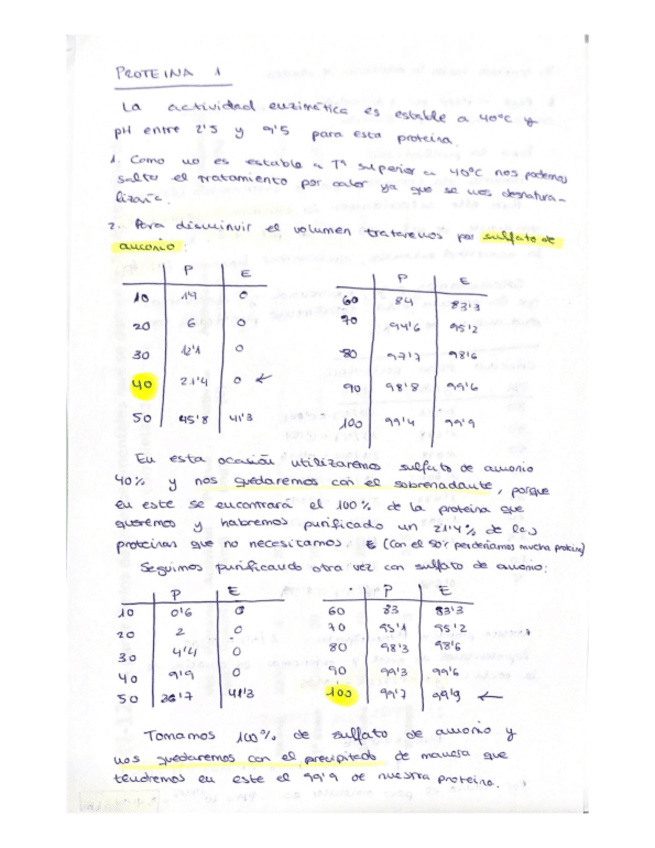 PROTEINA 1
La actividad enzimática es estable a 40ºC y
pH entre 2'5 y 9'5 para esta proteína.
1. Como no es estable a Tª superior a 40ºC nos podemos
saltar el tratamiento por calor ya que se nos desnatura-
lizaría.
2. Para disminuir el volumen trataremos por sulfato de
amonio:
P E P E
10 1'4 0 60 84 83'3
20 6 0 70 94'6 95'2
30 12'1 0 80 97'7 98'6
40 21'4 0 ← 90 98'8 99'6
50 45'8 41'3 100 99'4 99'9
En esta ocasión utilizaremos sulfato de amonio
40% y nos quedaremos con el sobrenadante, porque
en este se encontrará el 100% de la proteína que
queremos y habremos purificado un 21'4% de las
proteínas que no necesitamos. (Con el 50% perderíamos mucha proteína)
Seguimos purificando otra vez con sulfato de amonio:
P E P E
10 0'6 0 60 83 83'3
20 2 0 70 95'1 95'2
30 4'4 0 80 98'3 98'6
40 9'9 0 90 99'3 99'6
50 41'3 100 99'7 99'9 ←
Tomamos 100% de sulfato de amonio y
nos quedaremos con el precipitado de manera que
tendremos en este el 99'9 de nuestra proteína.